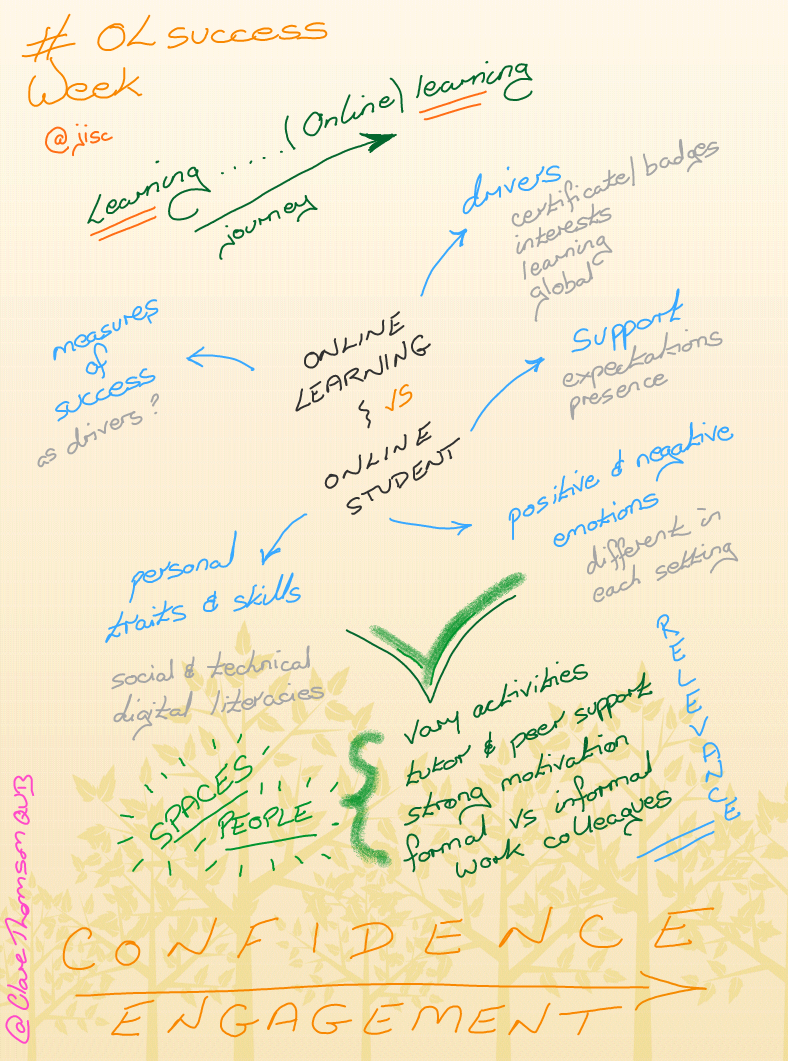 # OLsuccess
Week
@jisc
Learning ..... (Online) learning
journey
drivers
certificate/badges
interests
learning
global
measures
of
success
as drivers?
ONLINE
LEARNING
} VS
ONLINE
STUDENT
Support
expectations
presence
positive & negative
emotions
different in
each setting
personal
traits & skills
social & technical
digital literacies
RELEVANCE
vary activities
tutor & peer support
strong motivation
formal vs informal
work colleagues
SPACES
PEOPLE
CONFIDENCE
ENGAGEMENT
@ClareThomsonQUB